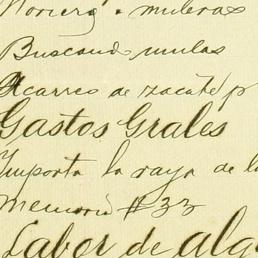 Noriero a muleros
Buscando mulas
Acarreo de zacate p
Gastos Grales
Importa la raya de la
Memoria # 33
Labor de alg